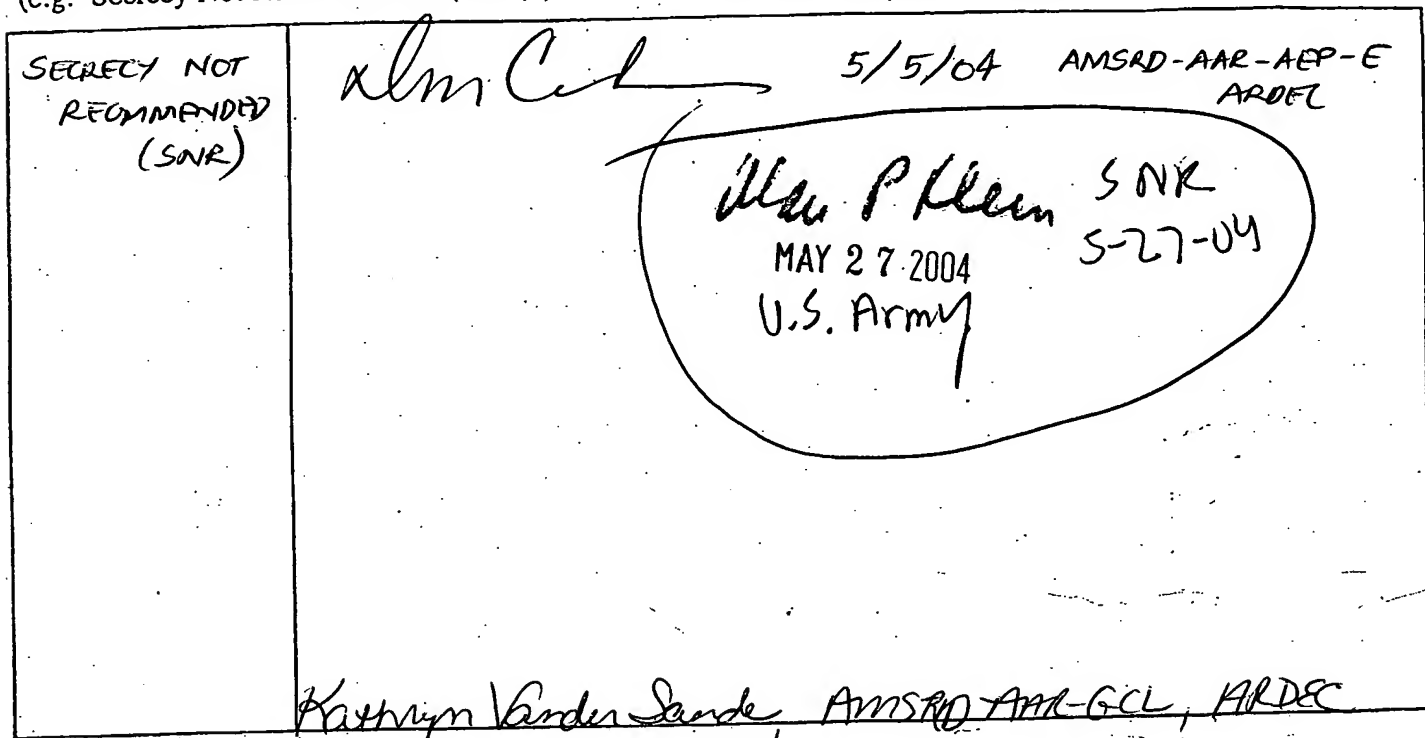 SECRECY NOT
RECOMMENDED
(SNR)
5/5/04 AMSRD-AAR-AEP-E
ARDEC
Alan P Klein SNR
MAY 27 2004 5-27-04
U.S. Army
Kathryn Vander Sande, AMSRD-AAR-GCL, ARDEC